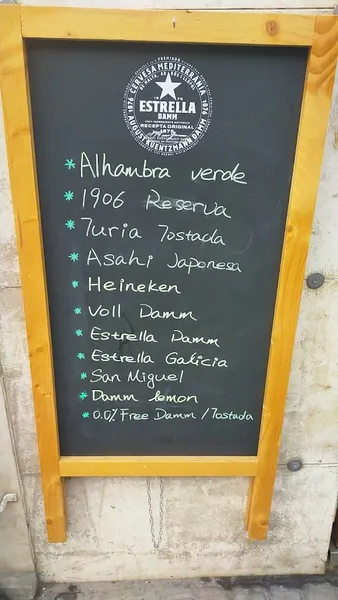 CERVESA MEDITERRÀNIA
1876 1876
ESTRELLA
DAMM
RECEPTA ORIGINAL
1876
AUGUST KUENTZMANN DAMM
* Alhambra verde
* 1906 Reserva
* Turia Tostada
* Asahi Japonesa
* Heineken
* Voll Damm
* Estrella Damm
* Estrella Galicia
* San Miguel
* Damm lemon
* 0.0% Free Damm / Tostada